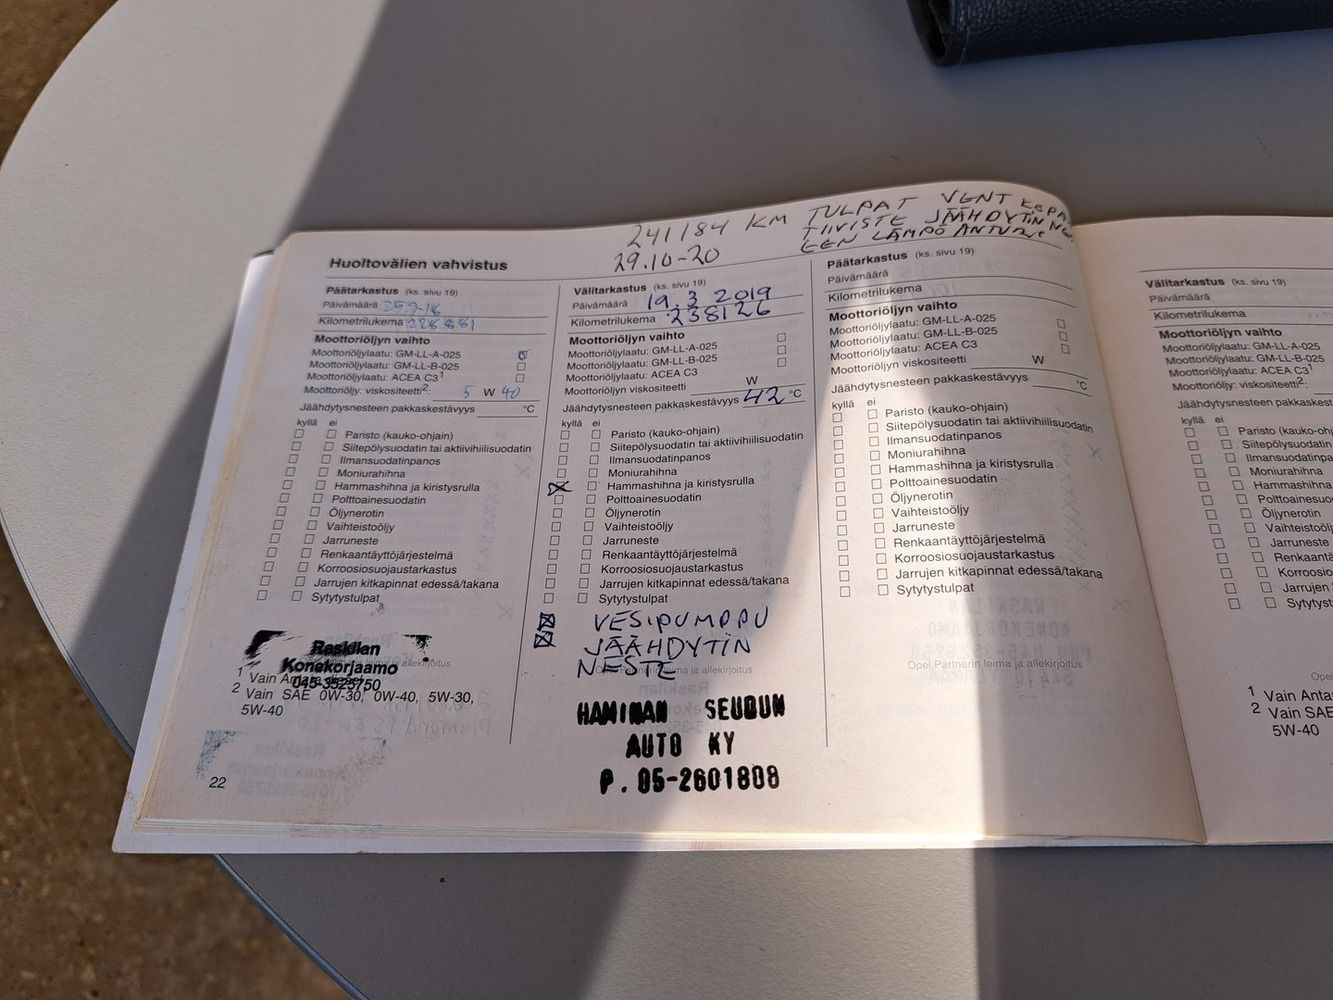 241184 KM TULPAT VENT KOPA
29.10-20 TIIVISTE JÄÄHDYTIN NES
EEN LÄMPÖ ANTURI
Huoltovälien vahvistus
Päätarkastus (ks. sivu 19)
Päivämäärä
Kilometrilukema
Moottoriöljyn vaihto
Moottoriöljylaatu: GM-LL-A-025
Moottoriöljylaatu: GM-LL-B-025
Moottoriöljylaatu: ACEA C3¹
Moottoriöljy: viskositeetti²: 5 W 40
Jäähdytysnesteen pakkaskestävyys °C
kyllä ei
Paristo (kauko-ohjain)
Siitepölysuodatin tai aktiivihiilisuodatin
Ilmansuodatinpanos
Moniurahihna
Hammashihna ja kiristysrulla
Polttoainesuodatin
Öljynerotin
Vaihteistoöljy
Jarruneste
Renkaantäyttöjärjestelmä
Korroosiosuojaustarkastus
Jarrujen kitkapinnat edessä/takana
Sytytystulpat
Raskilan
Konekorjaamo
045-3525750
¹ Vain
² Vain SAE 0W-30, 0W-40, 5W-30,
5W-40
22
Välitarkastus (ks. sivu 19)
Päivämäärä 19.3 2019
Kilometrilukema 238126
Moottoriöljyn vaihto
Moottoriöljylaatu: GM-LL-A-025
Moottoriöljylaatu: GM-LL-B-025
Moottoriöljylaatu: ACEA C3
Moottoriöljyn viskositeetti W
Jäähdytysnesteen pakkaskestävyys 42 °C
kyllä ei
Paristo (kauko-ohjain)
Siitepölysuodatin tai aktiivihiilisuodatin
Ilmansuodatinpanos
Moniurahihna
Hammashihna ja kiristysrulla
Polttoainesuodatin
Öljynerotin
Vaihteistoöljy
Jarruneste
Renkaantäyttöjärjestelmä
Korroosiosuojaustarkastus
Jarrujen kitkapinnat edessä/takana
Sytytystulpat
VESIPUMPPU
JÄÄHDYTIN
NESTE
Opel Partnerin leima ja allekirjoitus
HAMINAN SEUDUN
AUTO KY
P. 05-2601808
Päätarkastus (ks. sivu 19)
Päivämäärä
Kilometrilukema
Moottoriöljyn vaihto
Moottoriöljylaatu: GM-LL-A-025
Moottoriöljylaatu: GM-LL-B-025
Moottoriöljylaatu: ACEA C3
Moottoriöljyn viskositeetti W
Jäähdytysnesteen pakkaskestävyys °C
kyllä ei
Paristo (kauko-ohjain)
Siitepölysuodatin tai aktiivihiilisuodatin
Ilmansuodatinpanos
Moniurahihna
Hammashihna ja kiristysrulla
Polttoainesuodatin
Öljynerotin
Vaihteistoöljy
Jarruneste
Renkaantäyttöjärjestelmä
Korroosiosuojaustarkastus
Jarrujen kitkapinnat edessä/takana
Sytytystulpat
Opel Partnerin leima ja allekirjoitus
Välitarkastus (ks. sivu 19)
Päivämäärä
Kilometrilukema
Moottoriöljyn vaihto
Moottoriöljylaatu: GM-LL-A-025
Moottoriöljylaatu: GM-LL-B-025
Moottoriöljylaatu: ACEA C3¹
Moottoriöljy: viskositeetti²:
Jäähdytysnesteen pakkaskest
kyllä ei
Paristo (kauko-oh
Siitepölysuodatin
Ilmansuodatinpa
Moniurahihna
Hammashihna
Polttoainesuo
Öljynerotin
Vaihteistoölj
Jarruneste
Renkaantä
Korroosio
Jarrujen
Sytytyst
Opel
¹ Vain Anta
² Vain SAE
5W-40